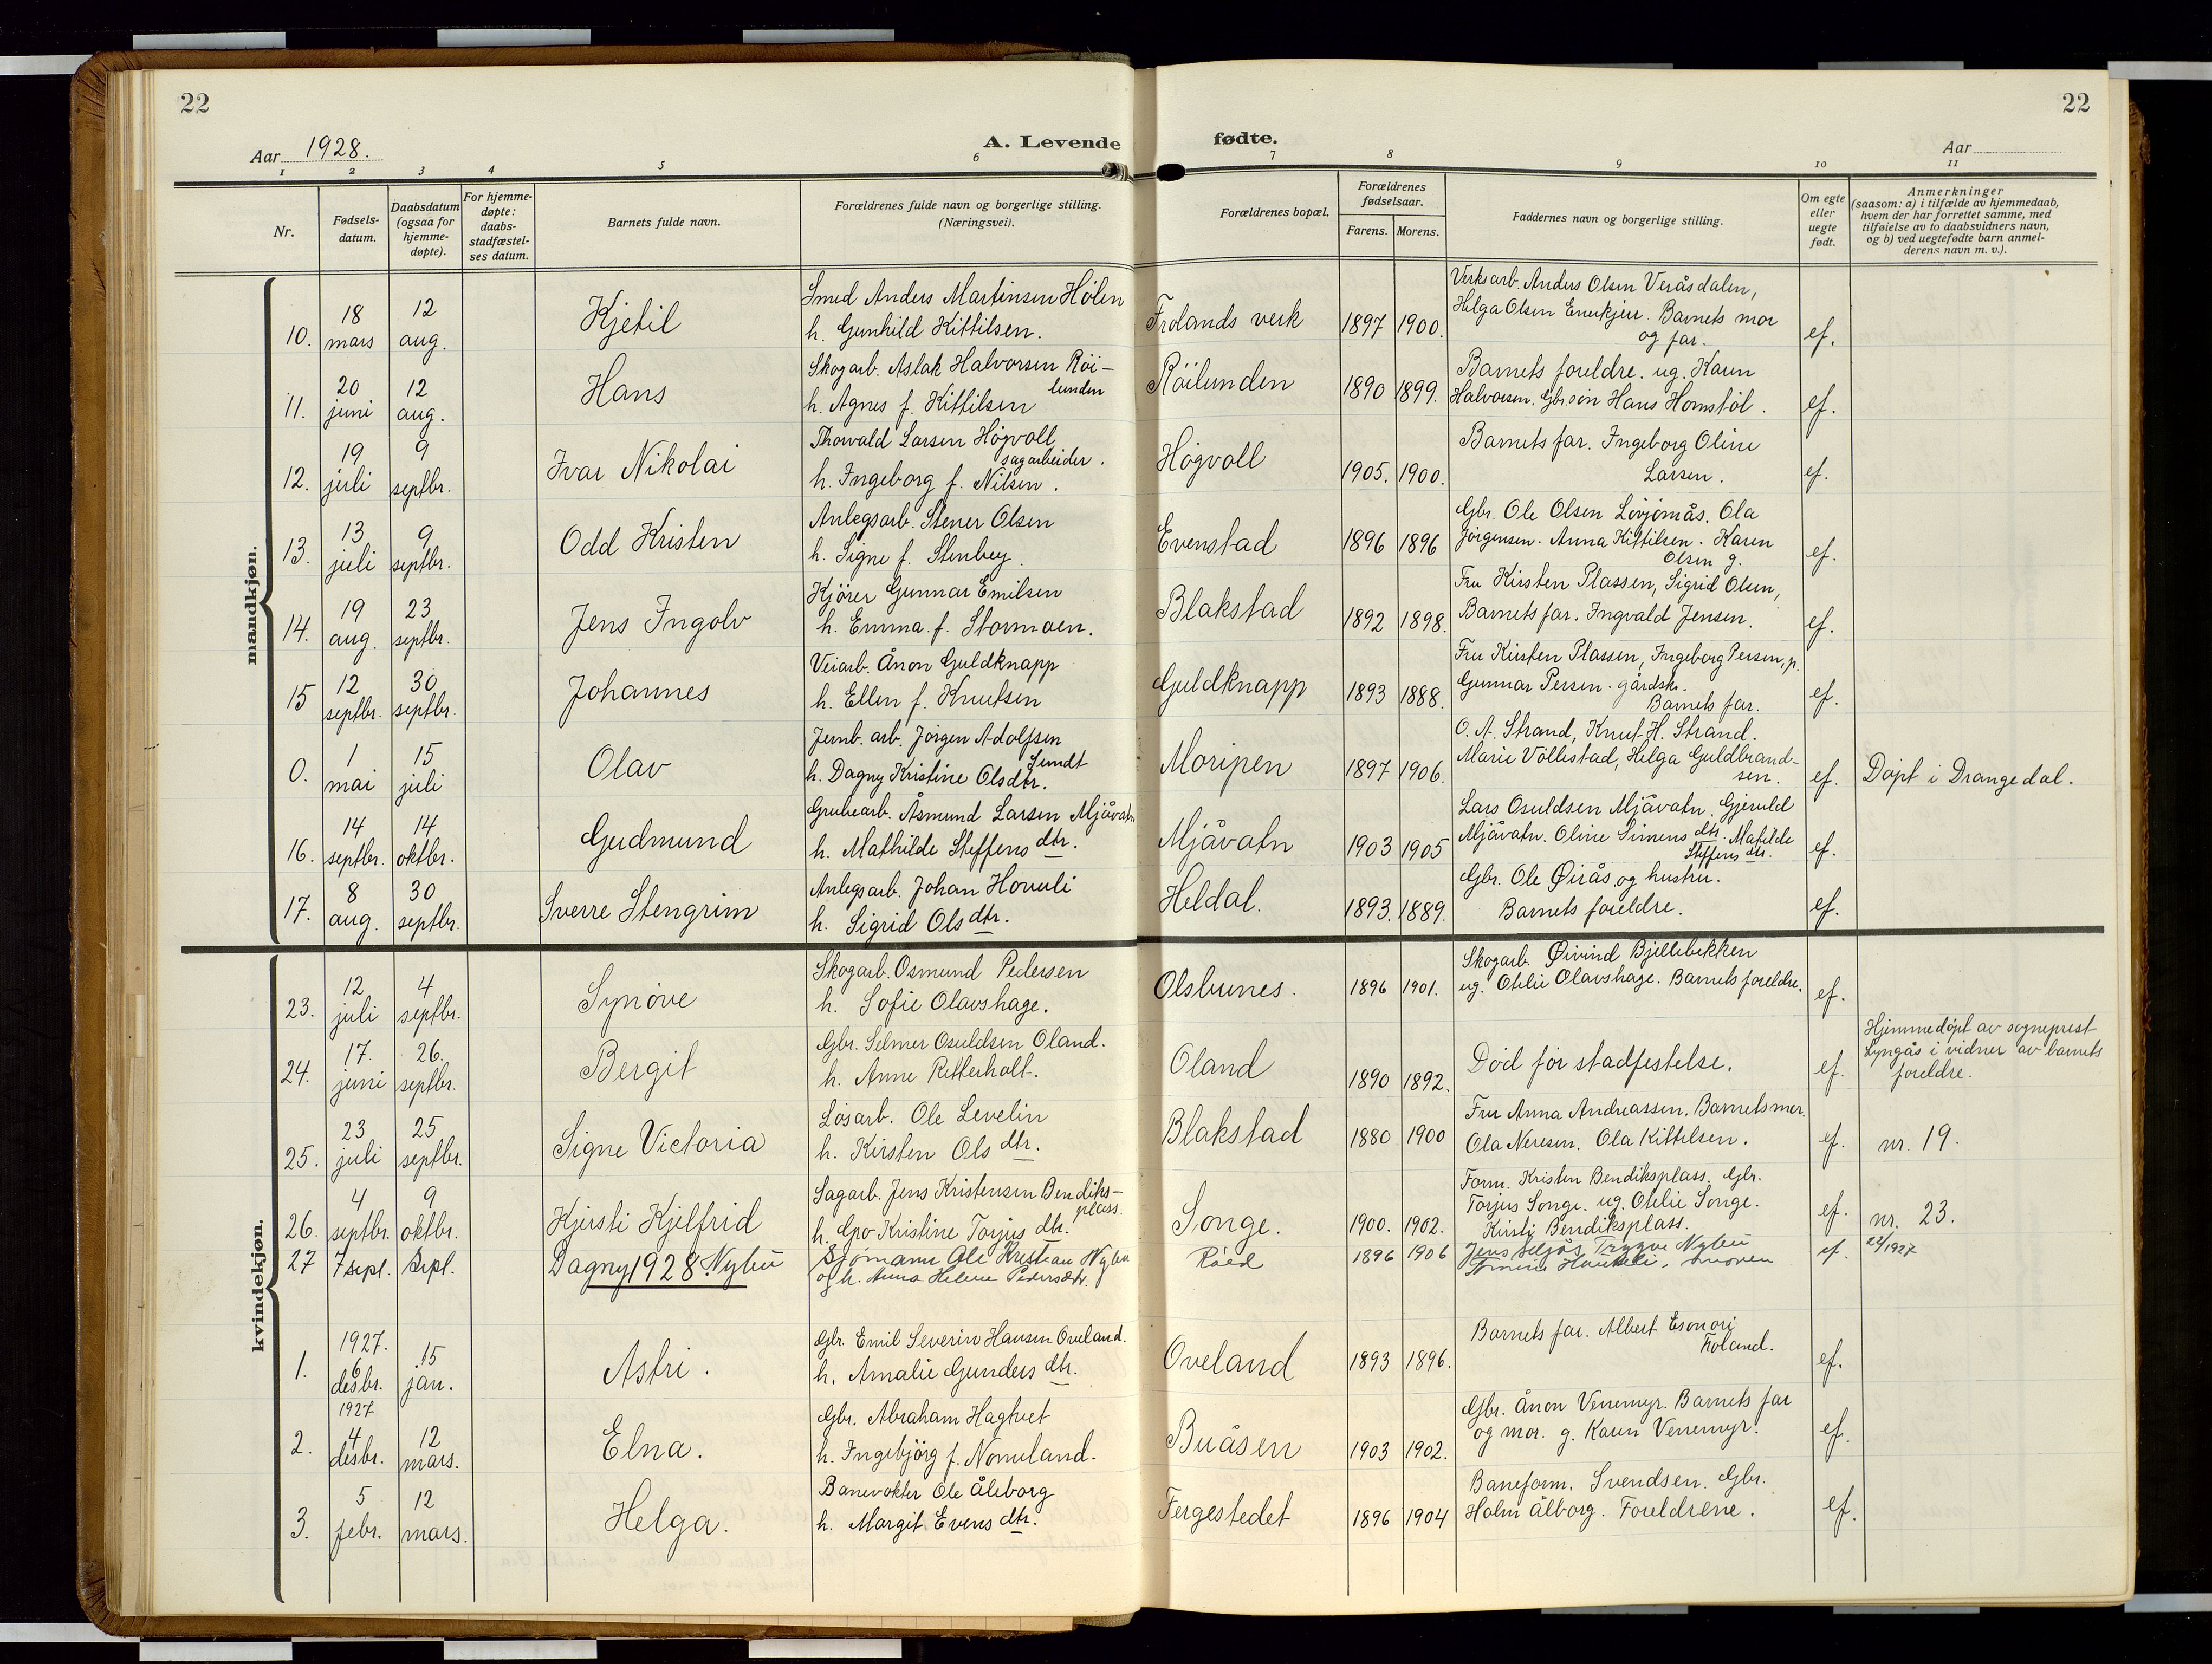 22
22
Aar 1928.
A. Levende
fødte.
Aar
1 2 3 4 5 6 7 8 9 10 11
Nr.
Fødsels-
datum.
Daabsdatum
(ogsaa for
hjemme-
døpte).
For hjemme-
døpte:
daabs-
stadfæstel-
ses datum.
Barnets fulde navn.
Forældrenes fulde navn og borgerlige stilling.
(Næringsvei).
Forældrenes bopæl.
Forældrenes
fødselsaar.
Farens. Morens.
Faddernes navn og borgerlige stilling.
Om egte
eller
uegte
født.
Anmerkninger
(saasom: a) i tilfælde av hjemmedaab,
hvem der har forrettet samme, med
tilføielse av to daabsvidners navn,
og b) ved uegtefødte barn anmel-
derens navn m. v.).
mandkjøn.
10. 18 mars 12 aug. Kjetil
Smed Anders Martinsen Hölen
h. Gunhild Kittilsen.
Frolands verk 1897 1900.
Verksarb. Anders Olsen Veråsdalen,
Helga Olsen Enerkjær. Barnets mor
og far. ef.
11. 20 juni 12 aug. Hans
Skogarb. Aslak Halvorsen Röi-
lunden
h. Agnes f. Kittilsen
Röilunden 1890 1899.
Barnets foreldre. ug. Karen
Halvorsen. Gbr.sön Hans Homstöl. ef.
12. 19 juli 9 septbr. Ivar Nikolai
Thorvald Larsen Högvoll
sagarbeider.
h. Ingeborg f. Nilsen.
Högvoll 1905. 1900.
Barnets far. Ingeborg Oline
Larsen. ef.
13. 13 juli 9 septbr. Odd Kristen
Anlegsarb. Stener Olsen
h. Signe f. Stenbey.
Evenstad 1896 1896
Gbr. Ole Olsen Lövjomås. Ola
Jörgensen. Anna Kittilsen. Karen
Olsen g. ef.
14. 19 aug. 23 septbr. Jens Ingolv
Kjörer Gunnar Emilsen
h. Emma f. Stormoen.
Blakstad 1892 1898.
Fru Kirsten Plassen, Sigrid Olsen,
Barnets far. Ingvald Jensen. ef.
15 12 septbr. 30 septbr. Johannes
Veiarb. Ånon Guldknapp
h. Ellen f. Knutsen
Guldknapp 1893 1888.
Fru Kirsten Plassen, Ingeborg Persen, p.
Gunnar Persen. gårdsk.
Barnets far. ef.
0. 1 mai 15 juli Olav
Jernb. arb. Jörgen Adolfsen
Sundt
h. Dagny Kristine Olsdtr.
Moripen 1897 1906.
O. A. Strand, Knut H. Strand.
Marie Völlestad, Helga Guldbrand-
sen. ef. Döpt i Drangedal.
16. 14 septbr. 14 oktbr. Gudmund
Grubearb. Åsmund Larsen Mjåvatn
h. Mathilde Steffens dtr.
Mjåvatn 1903 1905
Lars Osuldsen Mjåvatn. Gjeruld
Mjåvatn. Oline Simens dtr. Matilde
Steffens dtr. ef.
17. 8 aug. 30 septbr. Sverre Stengrim
Anlegsarb. Johan Hovuli
h. Sigrid Ols dtr.
Heldal. 1893. 1889.
Gbr. Ole Öirås og hustru.
Barnets foreldre. ef.
kvindekjøn.
23. 12 juli 4 septbr. Synöve
Skogarb. Osmund Pedersen
h. Sofie Olavshage.
Olsbunes. 1896 1901.
Skogarb. Øivind Bjellebekken
ug. Otilie Olavshage. Barnets foreldre. ef.
24. 17. juni 26. septbr. Bergit
Gbr. Selmer Osuldsen Oland.
h. Anne Retterholt.
Oland 1890 1892.
Död för stadfestelse. ef.
Hjemmedöpt av sogneprest
Lyngås i vidner av barnets
foreldre.
25. 23 juli 25 septbr. Signe Victoria
Lösarb. Ole Levelin
h. Kirsten Ols dtr.
Blakstad 1880 1900
Fru Anna Andreassen. Barnets mor.
Ola Neresen. Ola Kittilsen. ef. nr. 19.
26. 4 septbr. 9 oktbr. Kjersti Kjelfrid
Sagarb. Jens Kristensen Bendiks-
plass.
h. Gro Kristine Torjus dtr.
Songe. 1900. 1902.
Form. Kristen Bendiksplass. Gbr.
Torjus Songe. ug. Otilie Songe.
Kirsti Bendiksplass. ef. nr. 23.
27 7 sept. sept. Dagny 1928 Nybu
Sjömann Ole Kristian Nybu
og h. Anna Helene Pedersdtr.
Röed 1896 1906
Jens Seljås Trygve Nybu
Haukeli, moren ef. 22/1927
1. 1927. 6 desbr. 15 jan. Astri.
Gbr. Emil Severin Hansen Oveland.
h. Amalie Gunders dtr.
Oveland 1893 1896.
Barnets far. Albert Esonori
Froland. ef.
2. 1927 4 desbr. 12 mars. Elna.
Gbr. Abraham Hagtvet
h. Ingebjörg f. Nomeland.
Buåsen 1903 1902.
Gbr. Ånon Venemyr. Barnets far
og mor. g. Karen Venemyr. ef.
3. 5 febr. 12 mars. Helga.
Banevokter Ole Åleborg
h. Margit Evens dtr.
Fergestedet 1896 1904
Baneform. Svendsen. Gbr.
Holm Ålborg. Foreldrene. ef.